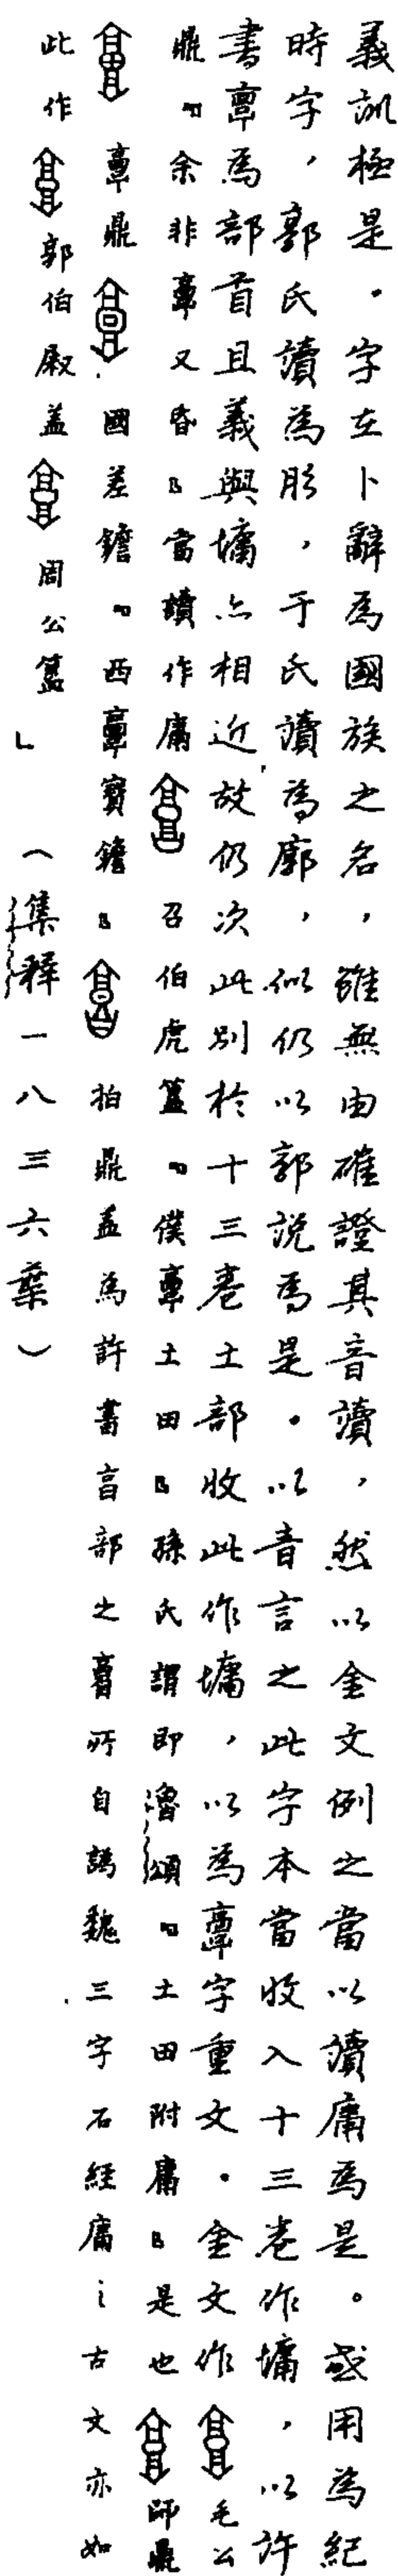 義訓極是．字在卜辭為國族之名，雖無由確證其音讀，然以金文例之當以讀庸為是。或用為紀
時字，郭氏讀為肜，于氏讀為廓，似仍以郭說為是．以音言之此字本當收入十三卷作墉，以許
書𩫖為部首且義與墉亦相近故仍次此別於十三卷土部收此作墉，以為𩫖字重文．金文作 毛公
鼎﹃余非𩫖又昏﹄當讀作庸 召伯虎簋﹃僕𩫖土田﹄孫氏謂即魯頌﹃土田附庸﹄是也 師𩫖
𩫖鼎 國差𦉜﹃西𩫖寶𦉜﹄ 拍鼎蓋為許書㐭部之𠅩所自譌魏三字石經庸之古文亦如
此作 郭伯𠭯蓋 周公簋」（集釋一八三六葉）